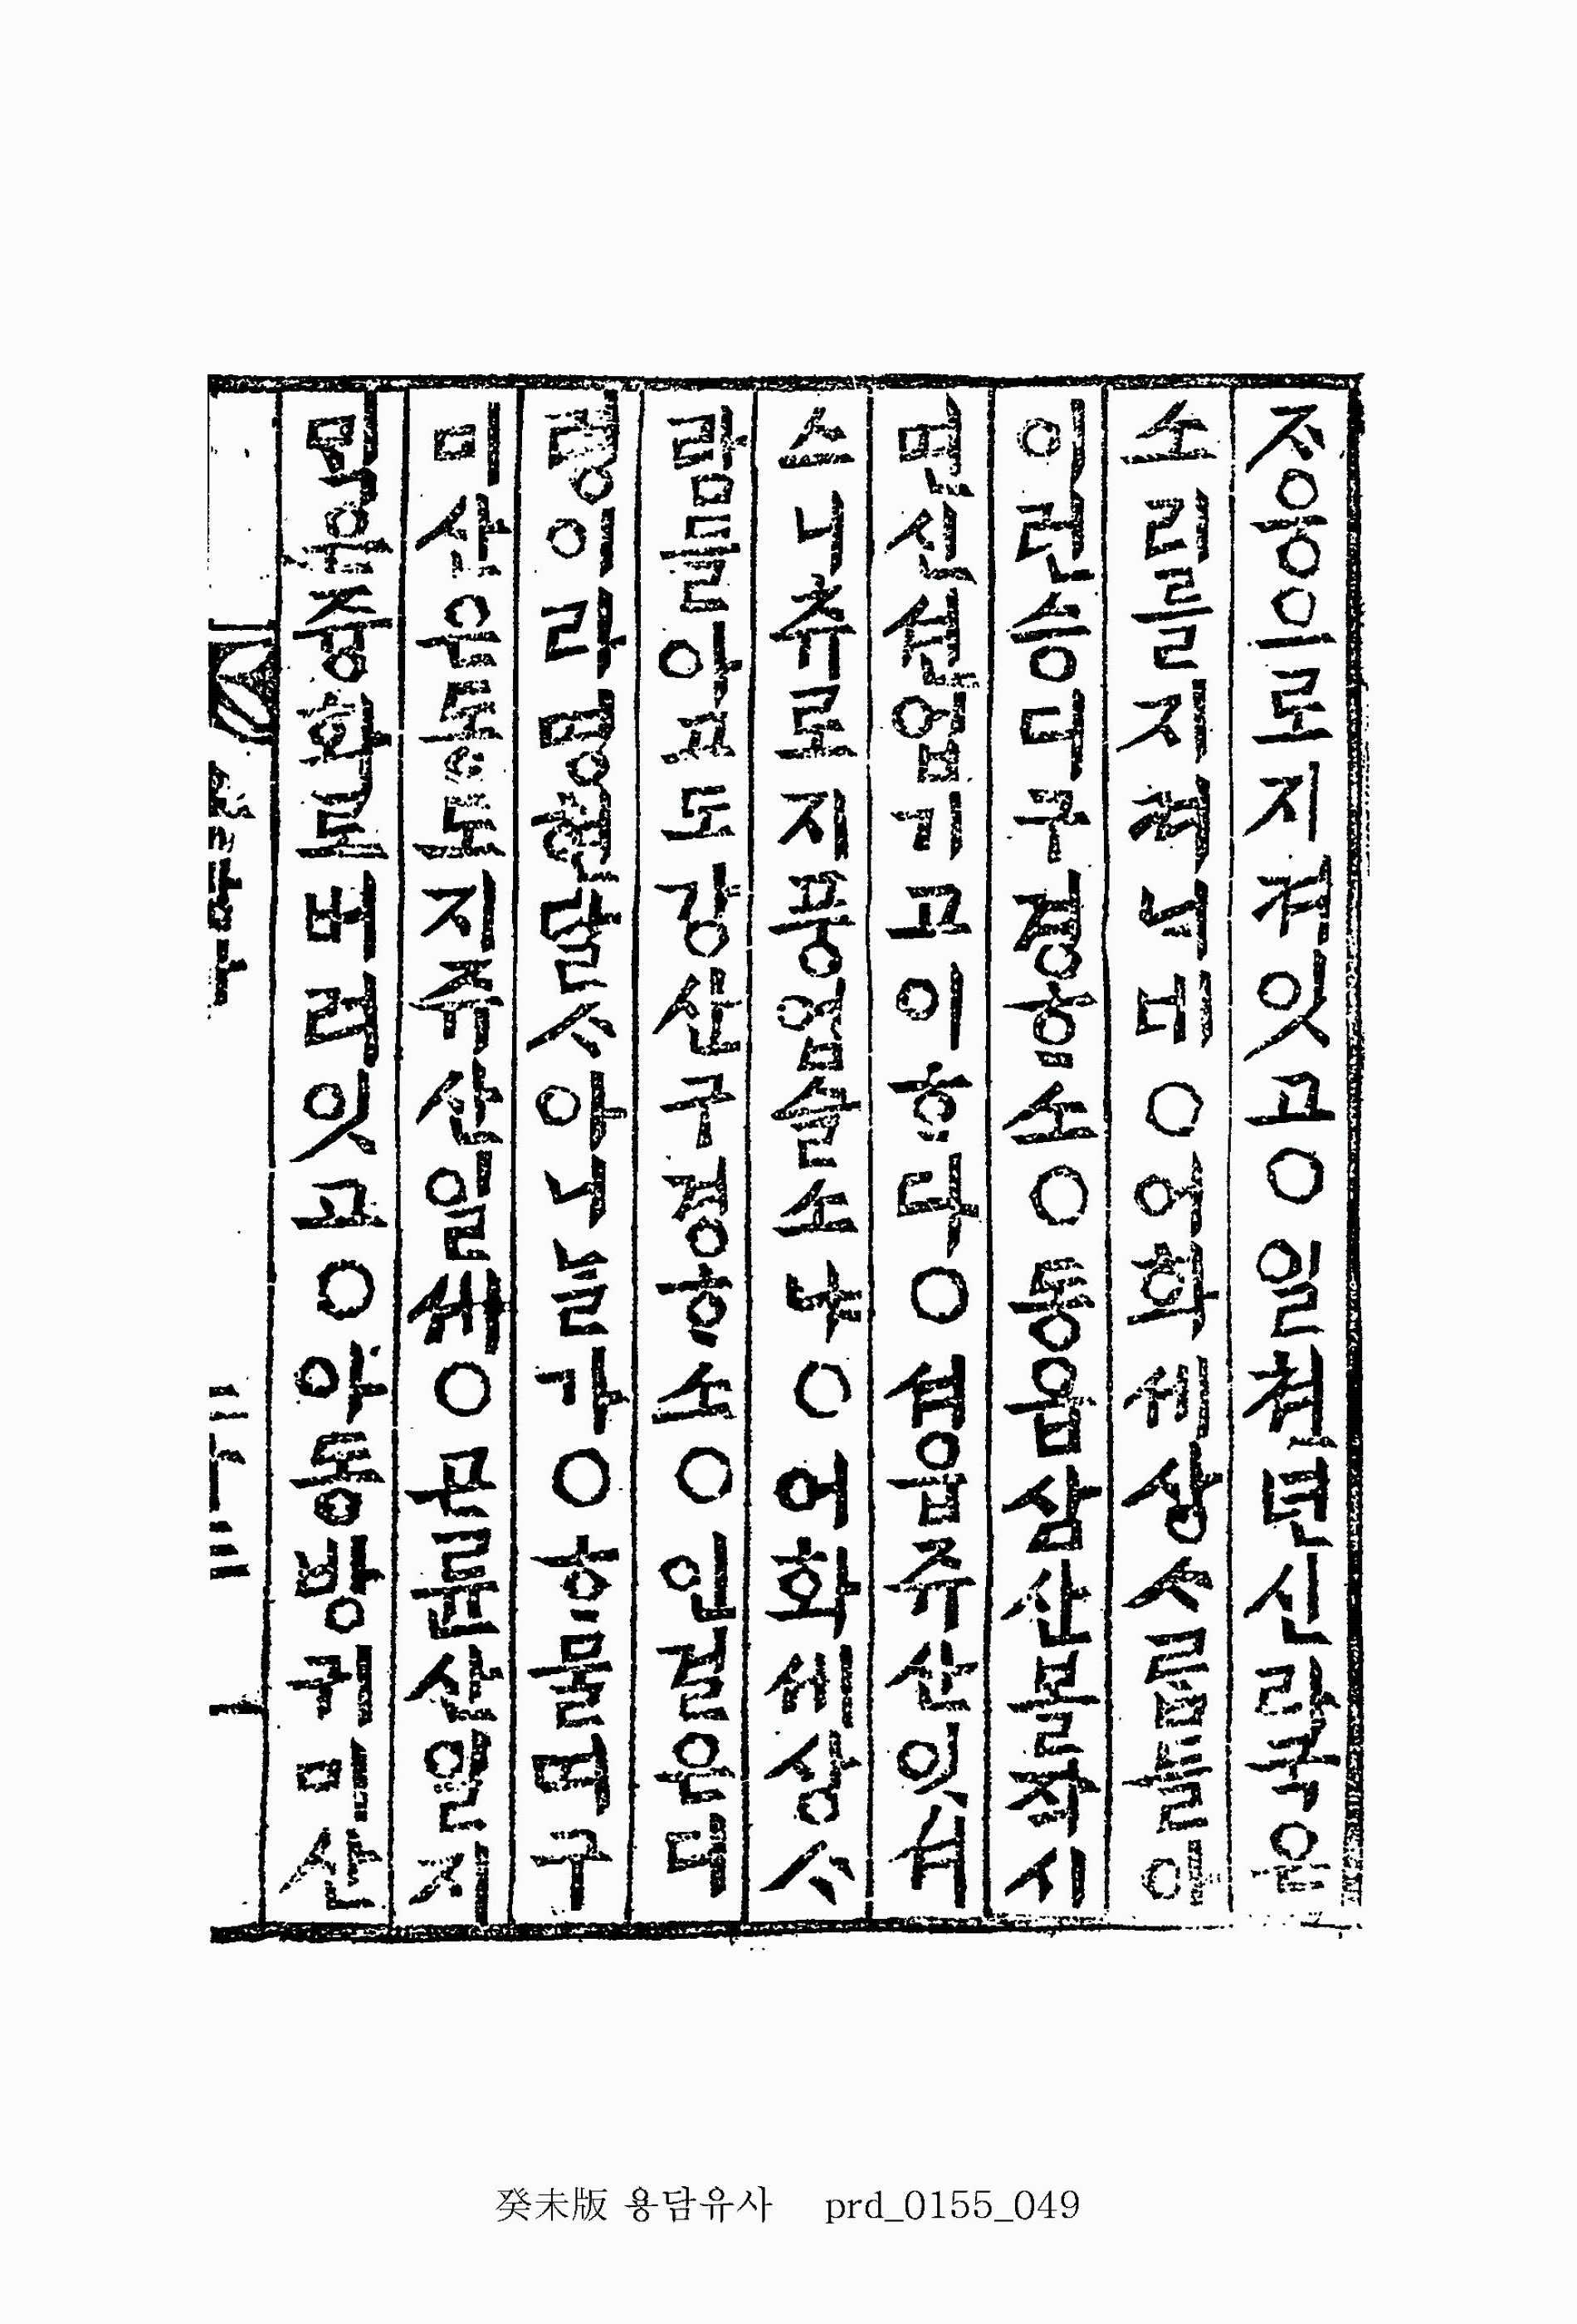 ᄌᆞ웅으로지켜잇고○일쳔년신라국은
소리를지켜ᄂᆡ네○어화세상ᄉᆞᄅᆞᆷ들아
이런승디구경ᄒᆞᆷ소○동읍삼산볼작시
면신션업기고이ᄒᆞ다○셔읍쥬산잇셔
스니츄로지풍업슬소냐○어화세상ᄉᆞ
람들아고도강산구경ᄒᆞ소○인걸은디
령이라명현달ᄉᆞ아니늘가○ᄒᆞ믈며구
미산은동도지쥬산일세○곤륜산일지
ᄆᆡᆨ은중화로버려잇고○아동방귀미산
二十三
癸未版 용담유사 prd_0155_049